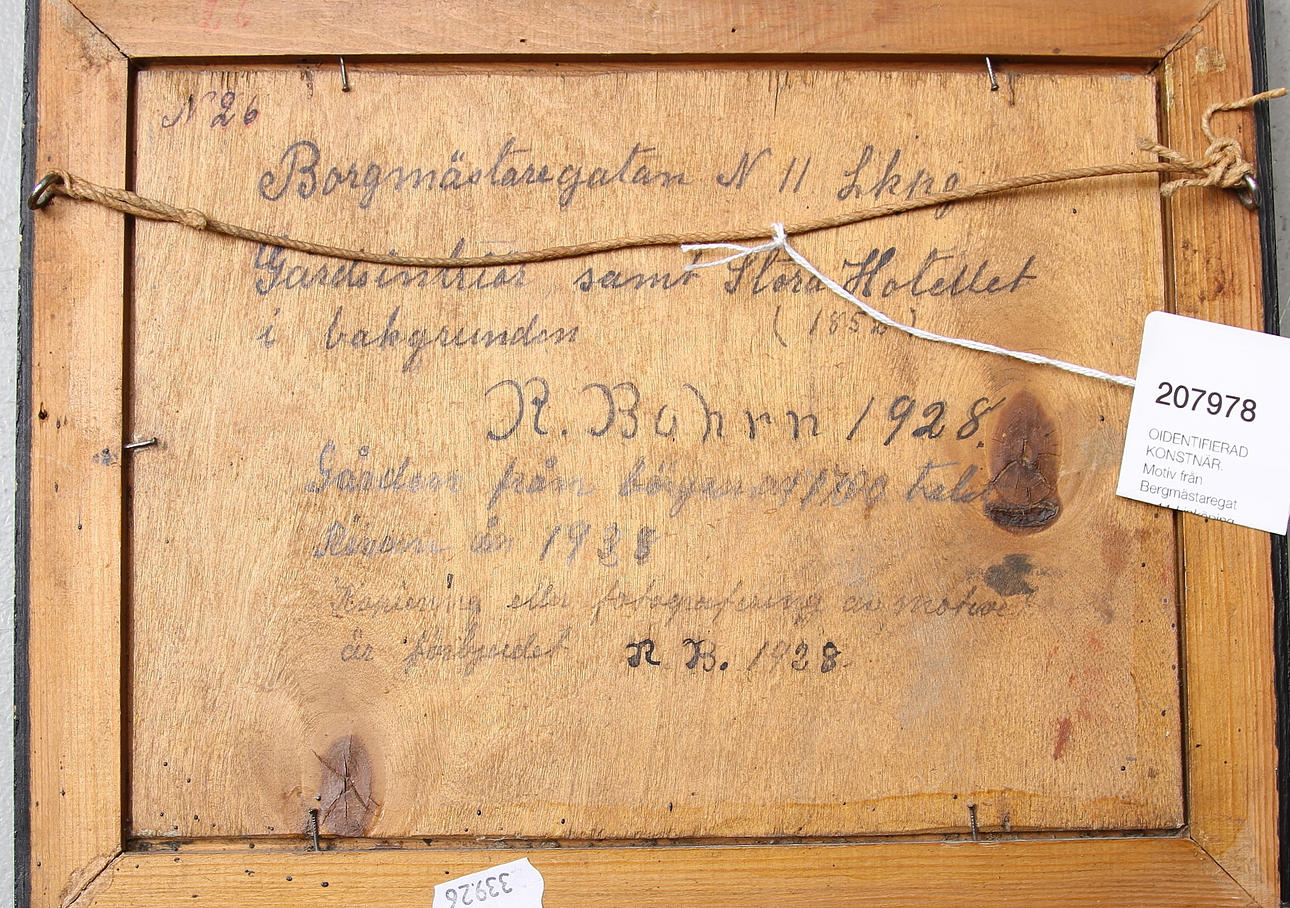 N 26
Borgmästaregatan N 11 Lkpg
Gårdsinteriör samt Stora Hotellet
i bakgrunden (1852)
R. Bohrn 1928
Gården från början av 1700 talet
Riven år 1928
Kopiering eller fotografering av motive
är förbjudet R B. 1928
207978
OIDENTIFIERAD
KONSTNÄR.
Motiv från
Bergmästaregat
33926